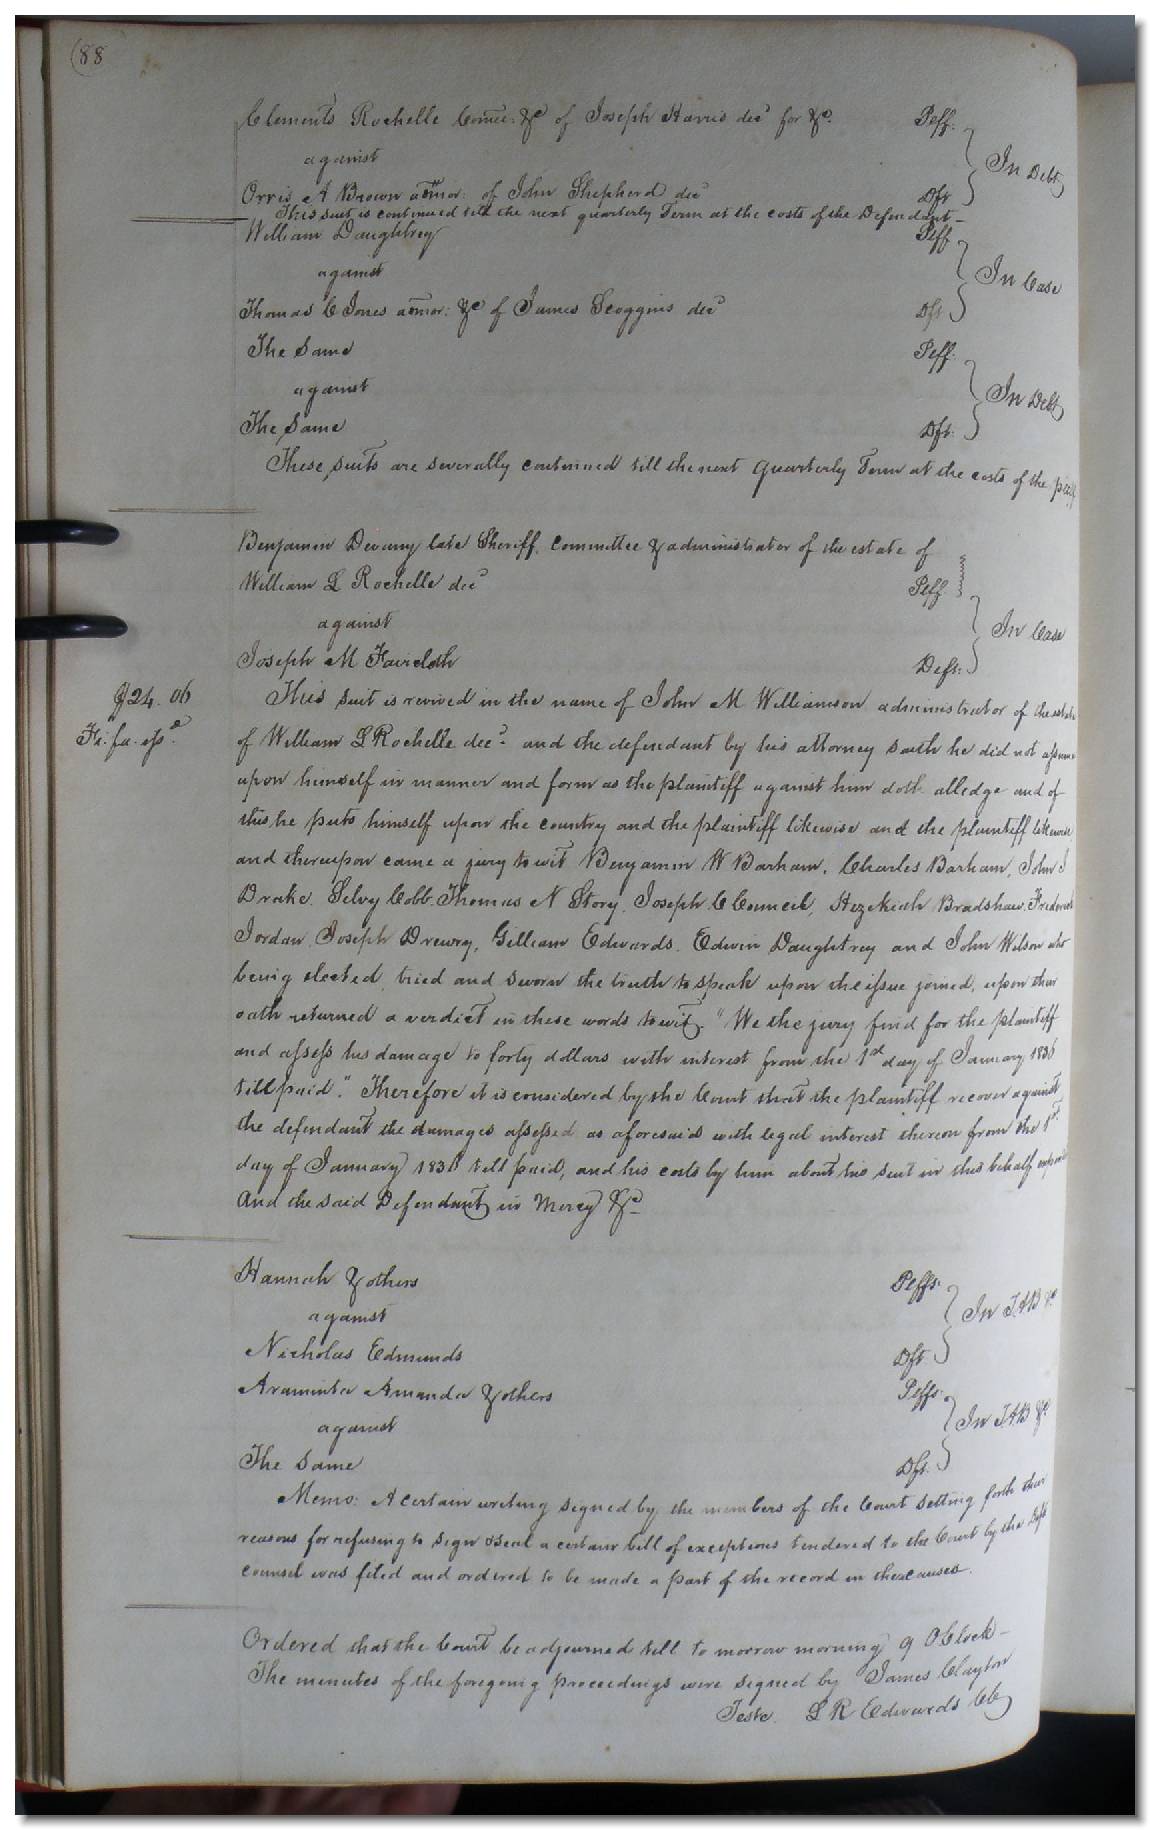 (88
Clements Rochelle Comee: &c of Joseph Harris decd for &c. Peff.
against In Debt
Orris A Brown admor: of John Shepherd decd Dft
This suit is continued till the next quarterly Term at the costs of the Defendant—
William Daughtrey Peff
against In Case
Thomas C Jones admor: &c of James Scoggins decd Dft
The Same Peff.
against In Debt
The Same Dft.
These suits are severally continued till the next quarterly Term at the costs of the peff
Benjamin Devany late Sheriff, committee & administrator of the estate of
William L Rochelle decd Peff
against In Case
Joseph M Faircloth Deft.
$24. 06
Fi. fa. ipd.
This suit is revived in the name of John M Williamson administrator of the estate
of William L Rochelle decd. and the defendant by his attorney saith he did not assume
upon himself in manner and form as the plaintiff against him doth alledge and of
this he puts himself upon the country and the plaintiff likewise and the plaintiff likewise
and thereupon came a jury to wit Benjamin W Barham, Charles Barham, John J
Drake, Selvy Cobb, Thomas N Story, Joseph C Council, Hezekiah Bradshaw, Frederick
Jordan, Joseph Drewry, Gilliam Edwards, Edwin Daughtrey and John Wilson who
being elected, tried and sworn the truth to speak upon the issue joined, upon their
oath returned a verdict in these words to wit, "We the jury find for the plaintiff
and assess his damage to forty dollars with interest from the 1st day of January 1836
till paid". Therefore it is considered by the Court that the plaintiff recover against
the defendant the damages assessed as aforesaid with legal interest thereon from the 1st.
day of January 1836 till paid, and his costs by him about his suit in this behalf expended
And the said Defendant in Mercy &c
Hannah & others Peffs.
against In T.A.B &c
Nicholas Edmunds Dft.
Araminta Amanda & others Peffs.
against In T.A.B &c
The Same Dft.
Memo: A certain writing signed by the members of the Court setting forth their
reasons for refusing to sign & seal a certain bill of exceptions tendered to the Court by the Defts
counsel was filed and ordered to be made a part of the record in these causes.
Ordered that the Court be adjourned till to morrow morning 9 OClock—
The minutes of the foregoing proceedings were signed by James Clayton
Teste. L R Edwards Clk